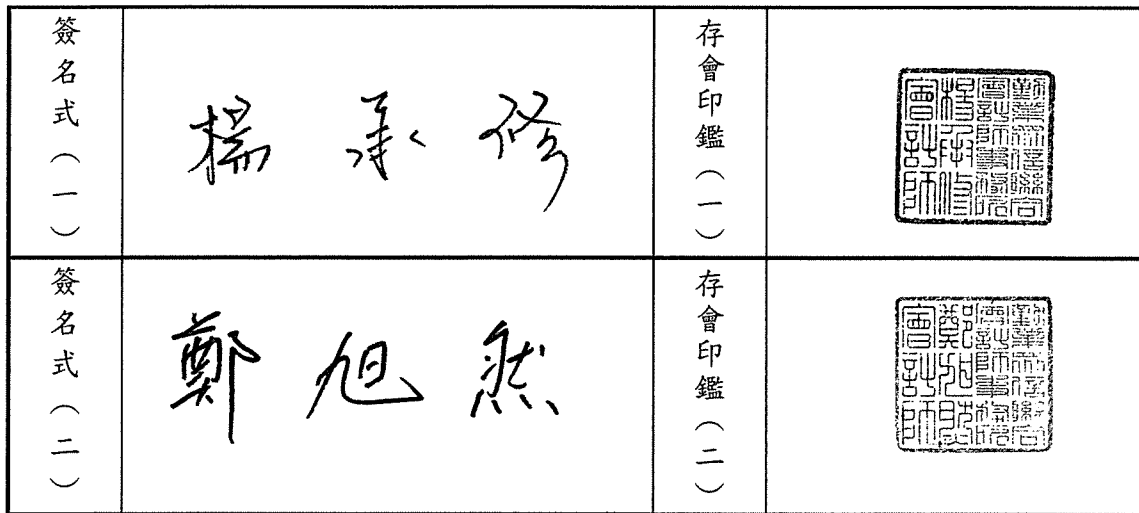 簽名式（一）
楊承修
存會印鑑（一）
勤業眾信聯合
會計師事務所
楊承修
會計師
簽名式（二）
鄭旭然
存會印鑑（二）
勤業眾信聯合
會計師事務所
鄭旭然
會計師